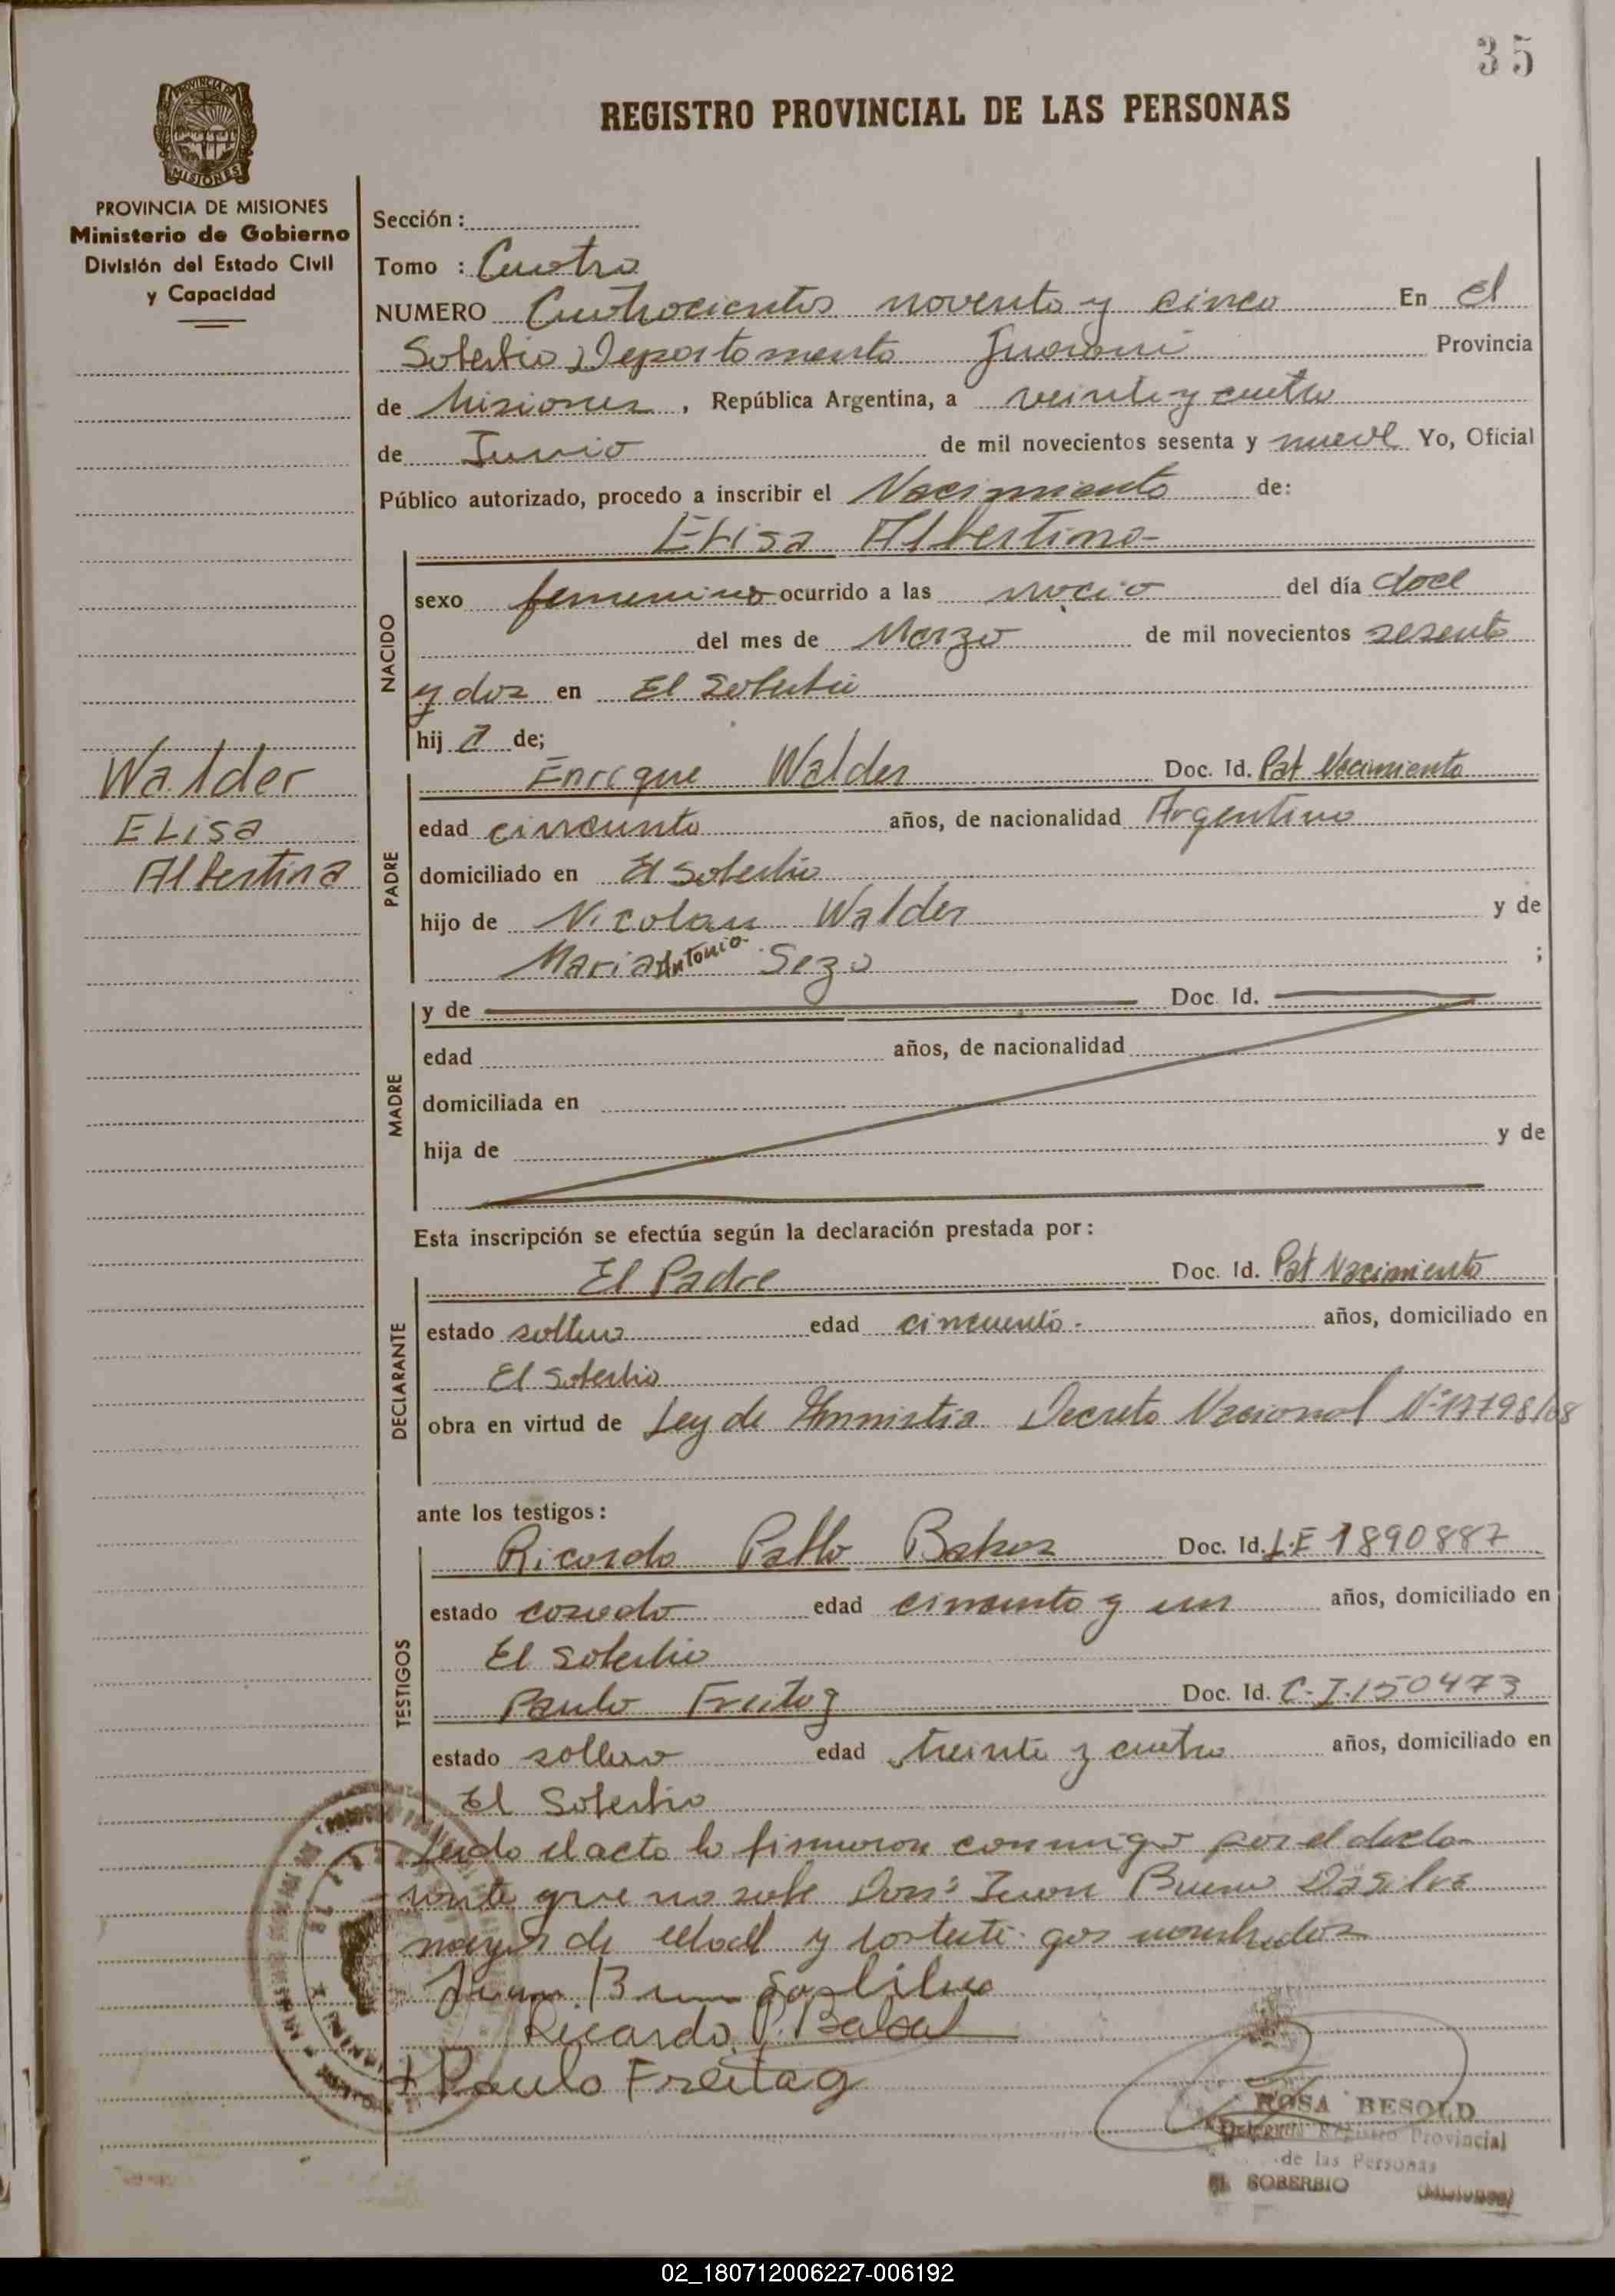 35
REGISTRO PROVINCIAL DE LAS PERSONAS
PROVINCIA DE MISIONES
MISIONES
PROVINCIA DE MISIONES
Ministerio de Gobierno
División del Estado Civil
y Capacidad
Sección :
Tomo : Cuatro
NUMERO Cuatrocientos noventa y cinco En El
Soberbio Departamento Guarani Provincia
de Misiones, República Argentina, a veinte y cuatro
de Junio de mil novecientos sesenta y nueve Yo, Oficial
Público autorizado, procedo a inscribir el Nacimiento de:
Elisa Albertina-
NACIDO
sexo femenino ocurrido a las del día doce
del mes de Marzo de mil novecientos sesenta
y dos en El Soberbio
hij a de;
Walder
Elisa
Albertina
PADRE
Enrique Walder Doc. Id. Pat Nacimiento
edad cincuenta años, de nacionalidad Argentino
domiciliado en El Soberbio
hijo de Nicolau Walder y de
Maria Antonia Sezo ;
MADRE
y de Doc. Id.
edad años, de nacionalidad
domiciliada en
hija de y de
Esta inscripción se efectúa según la declaración prestada por :
DECLARANTE
El Padre Doc. Id. Pat Nacimiento
estado soltero edad cincuenta - años, domiciliado en
El Soberbio
obra en virtud de Ley de Amnistia Decreto Nacional Nº 17798/68
ante los testigos :
TESTIGOS
Ricardo Pablo Doc. Id. L.E 1890887
estado casado edad cincuenta y un años, domiciliado en
El Soberbio
Paulo Freitag Doc. Id. C.I. 150473
estado soltero edad treinta y cuatro años, domiciliado en
El Soberbio
Leido el acta lo firmaron conmigo por el decla-
rante que no sabe Don: Juan Bueno Dasilva
mayor de edad y los testigos nombrados
Juan
Ricardo P.
+ Paulo Freitag
ROSA BESOLD
Delegada Registro Provincial
de las Personas
EL SOBERBIO (Misiones)
02_180712006227-006192